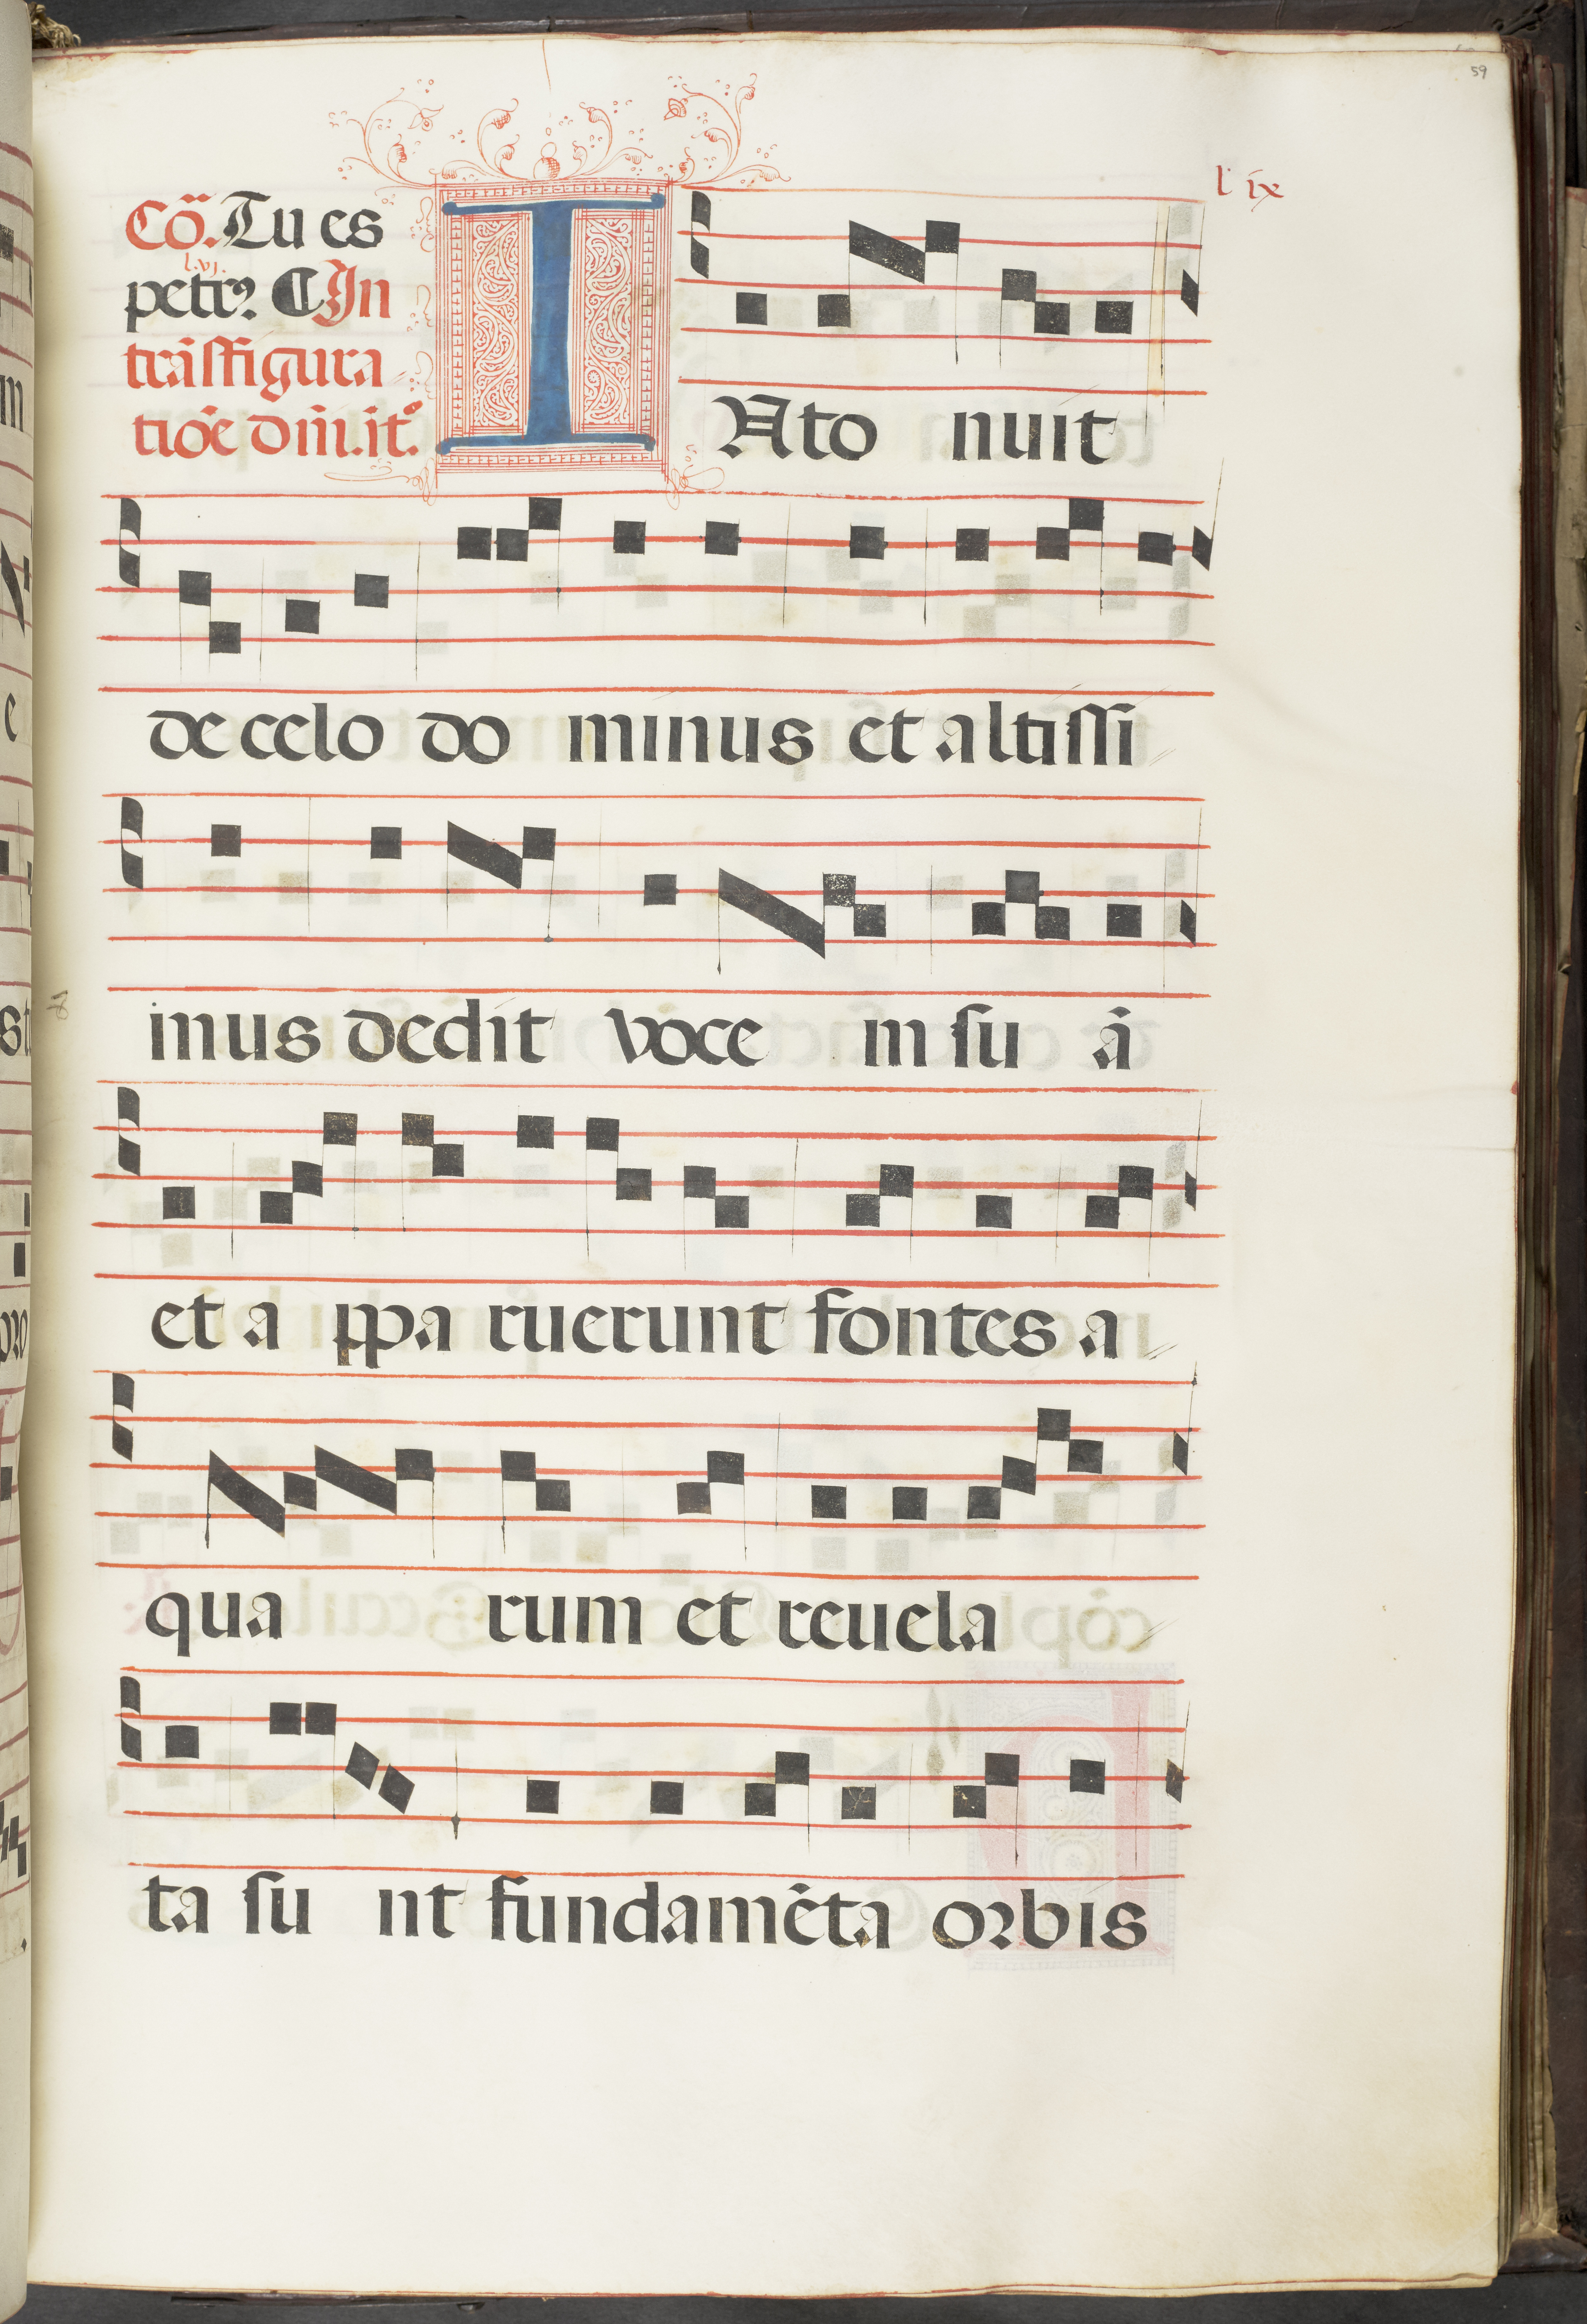 59
l ix
Cō. Tu es
l.vj.
petrꝰ. ¶ In
trāsfigura
tiōe dn̄i. itº.
I Ato nuit
de celo do minus et altissi
mus dedit voce m su ā
et a ppa ruerunt fontes a
qua rum et reuela
ta su nt fundamēta orbis